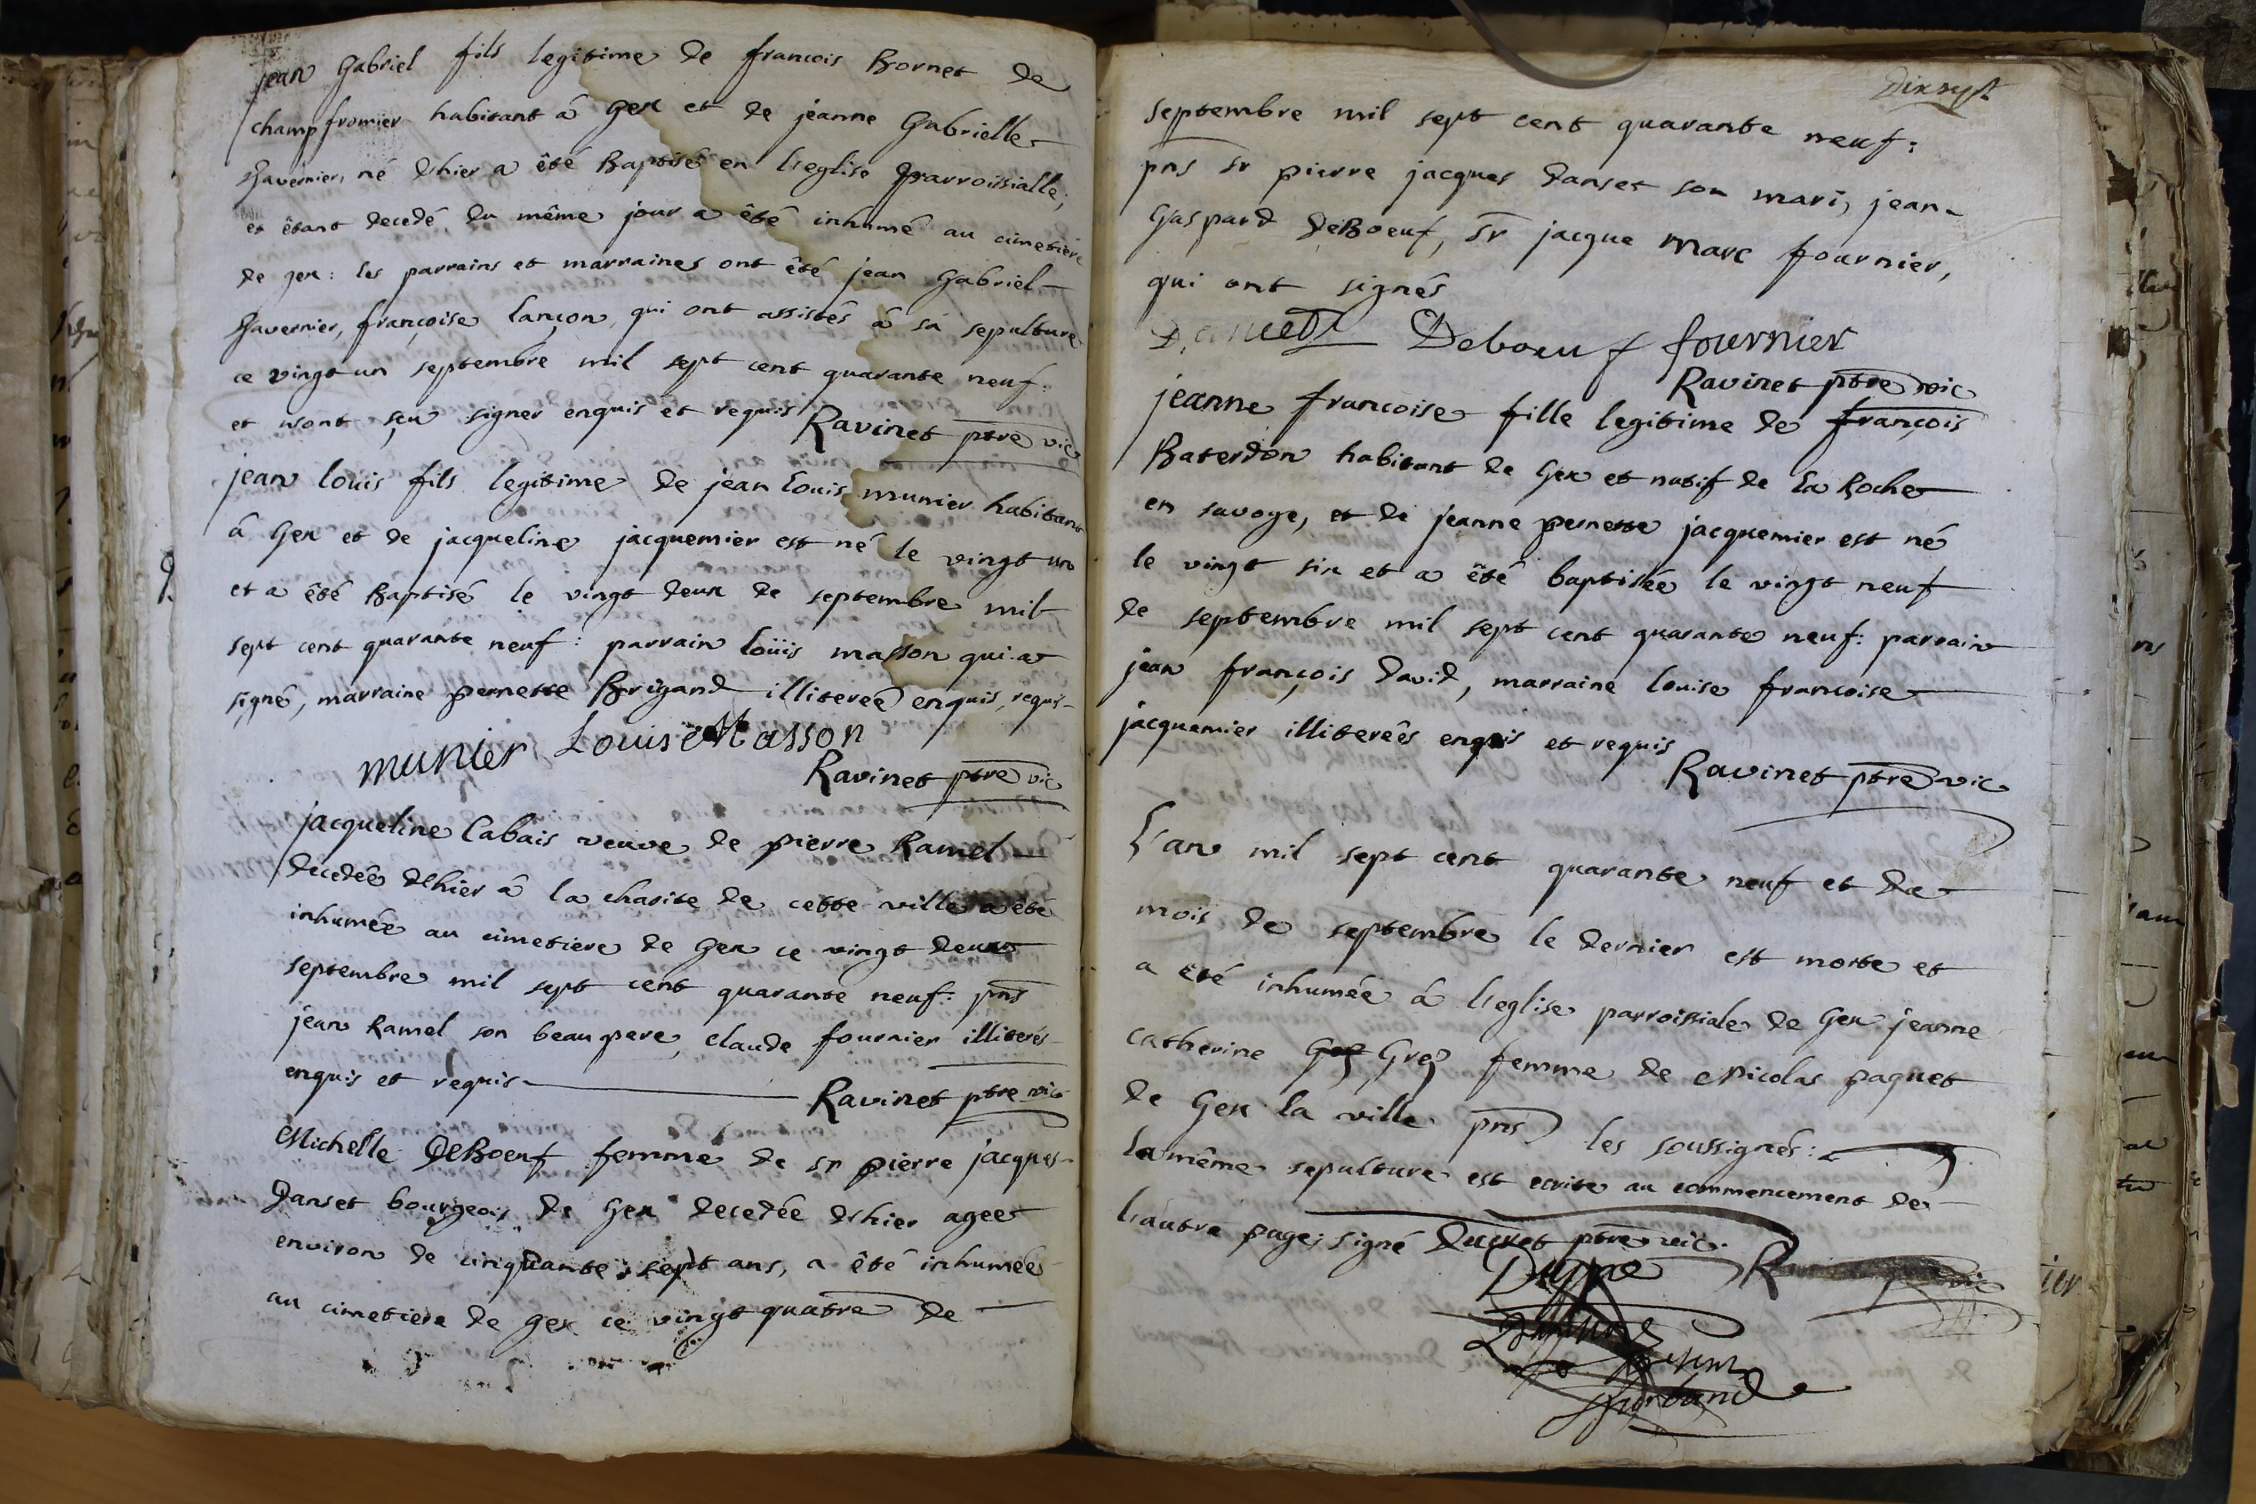 jean Gabriel fils legitime de francois Bornet de
champfromier habitant â gex et de jeanne Gabrielle
Tavernier, né dhier a êté Baptisé en l'eglise parroissialle,
et êtant decedé du même jour a êté inhumé au cimetiere
de gex : les parrains et marraines ont êté jean Gabriel
Tavernier, françoise lançon, qui ont assistés â sa sepulture
ce vingt un septembre mil sept cent quarante neuf :
et n'ont sçu signer enquis et requis Ravinet ptre vic
jean louis fils legitime de jean louis munier habitant
â Gex et de jacqueline jacquemier est né le vingt un
et a êté Baptisé le vingt deux de septembre mil
sept cent quarante neuf : parrain loüis masson qui a
signé, marraine pernette Brigand illitereé enquis, requis
munier Louis Masson
Ravinet ptre vic
jacqueline Cabais veuve de pierre Ramel
decedée dhier â la charite de cette ville a êté
inhumée au cimetiere de Gex ce vingt deux
septembre mil sept cent quarante neuf : pns
jean Ramel son beaupere, claude fournier illiterés
enquis et requis Ravinet ptre vic
Michelle DeBoeuf femme de sr pierre jacques
Danset bourgeois de Gex decedée dhier agee
environ de cinquante sept ans, a êté inhumée
au cimetiere de gex ce vingt quatre de
septembre mil sept cent quarante neuf :
pns sr pierre jacques danset son mari, jean
Gaspard DeBoeuf, sr jacque Marc fournier,
qui ont signés
Deboeuf fournier
Ravinet ptre vic
jeanne francoise fille legitime de françois
Baterdon habitant de Gex et natif de la Roche
en savoye, et de jeanne pernette jacquemier est né
le vingt six et a êté baptisée le vingt neuf
de septembre mil sept cent quarante neuf : parrain
jean françois david, marraine louise francoise
jacquemier illitereês enquis et requis
Ravinet ptre vic
L'an mil sept cent quarante neuf et du
mois de septembre le dernier est morte et
a eté inhumée â l'eglise parroissiale de Gex jeanne
catherine Grez femme de Nicolas paquet
de Gex la ville pns les soussignés :
la même sepulture est ecrite au commencement de
l'autre page ; signé Ducret ptre vic.